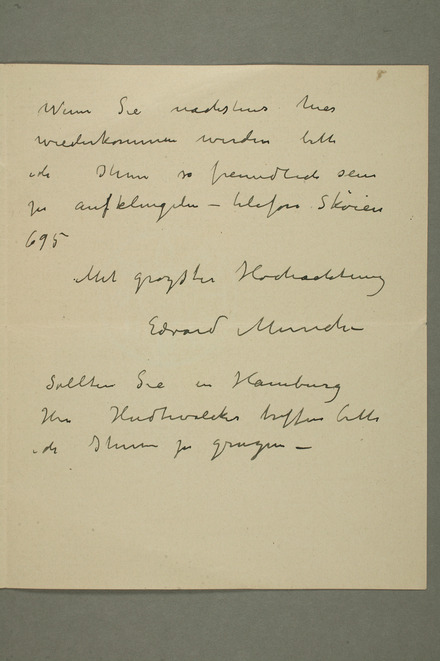 Wenn Sie nächstens hier
wiederkommen werden bitte
ich Ihnen so freundlich sein
zu aufklingeln – telefon Sköien
695
Mit grösster Hochachtung
Edvard Munch
Sollten Sie in Hamburg
Hrn Hudtwalcker treffen bitte
ich Ihnen zu grüssen –